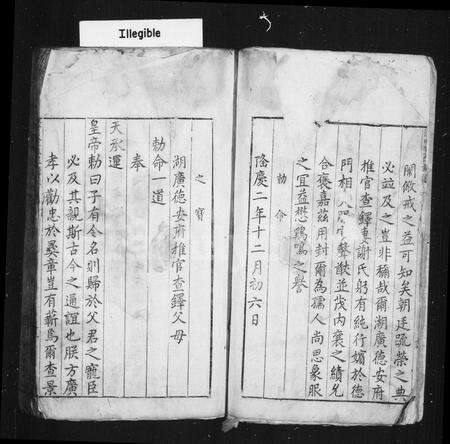 Illegible
閫儆戒之益可知矣朝廷疏榮之典
必竝及之豈非稱哉爾湖廣德安府
推官查鐸妻謝氏躬有純行嬪於德
門相 聲猷並茂內襄之績允
合褒嘉茲用封爾為孺人尚思象服
之宜益懋鷄鳴之譽
勅命
隆慶二年十二月初六日
之寶
湖廣德安府推官查鐸父母
勅命一道
奉
天承運
皇帝勅曰子有令名則歸於父君之寵臣
必及其親斯古今之通誼也朕方廣
孝以勸忠於彝章豈有蘄焉爾查景